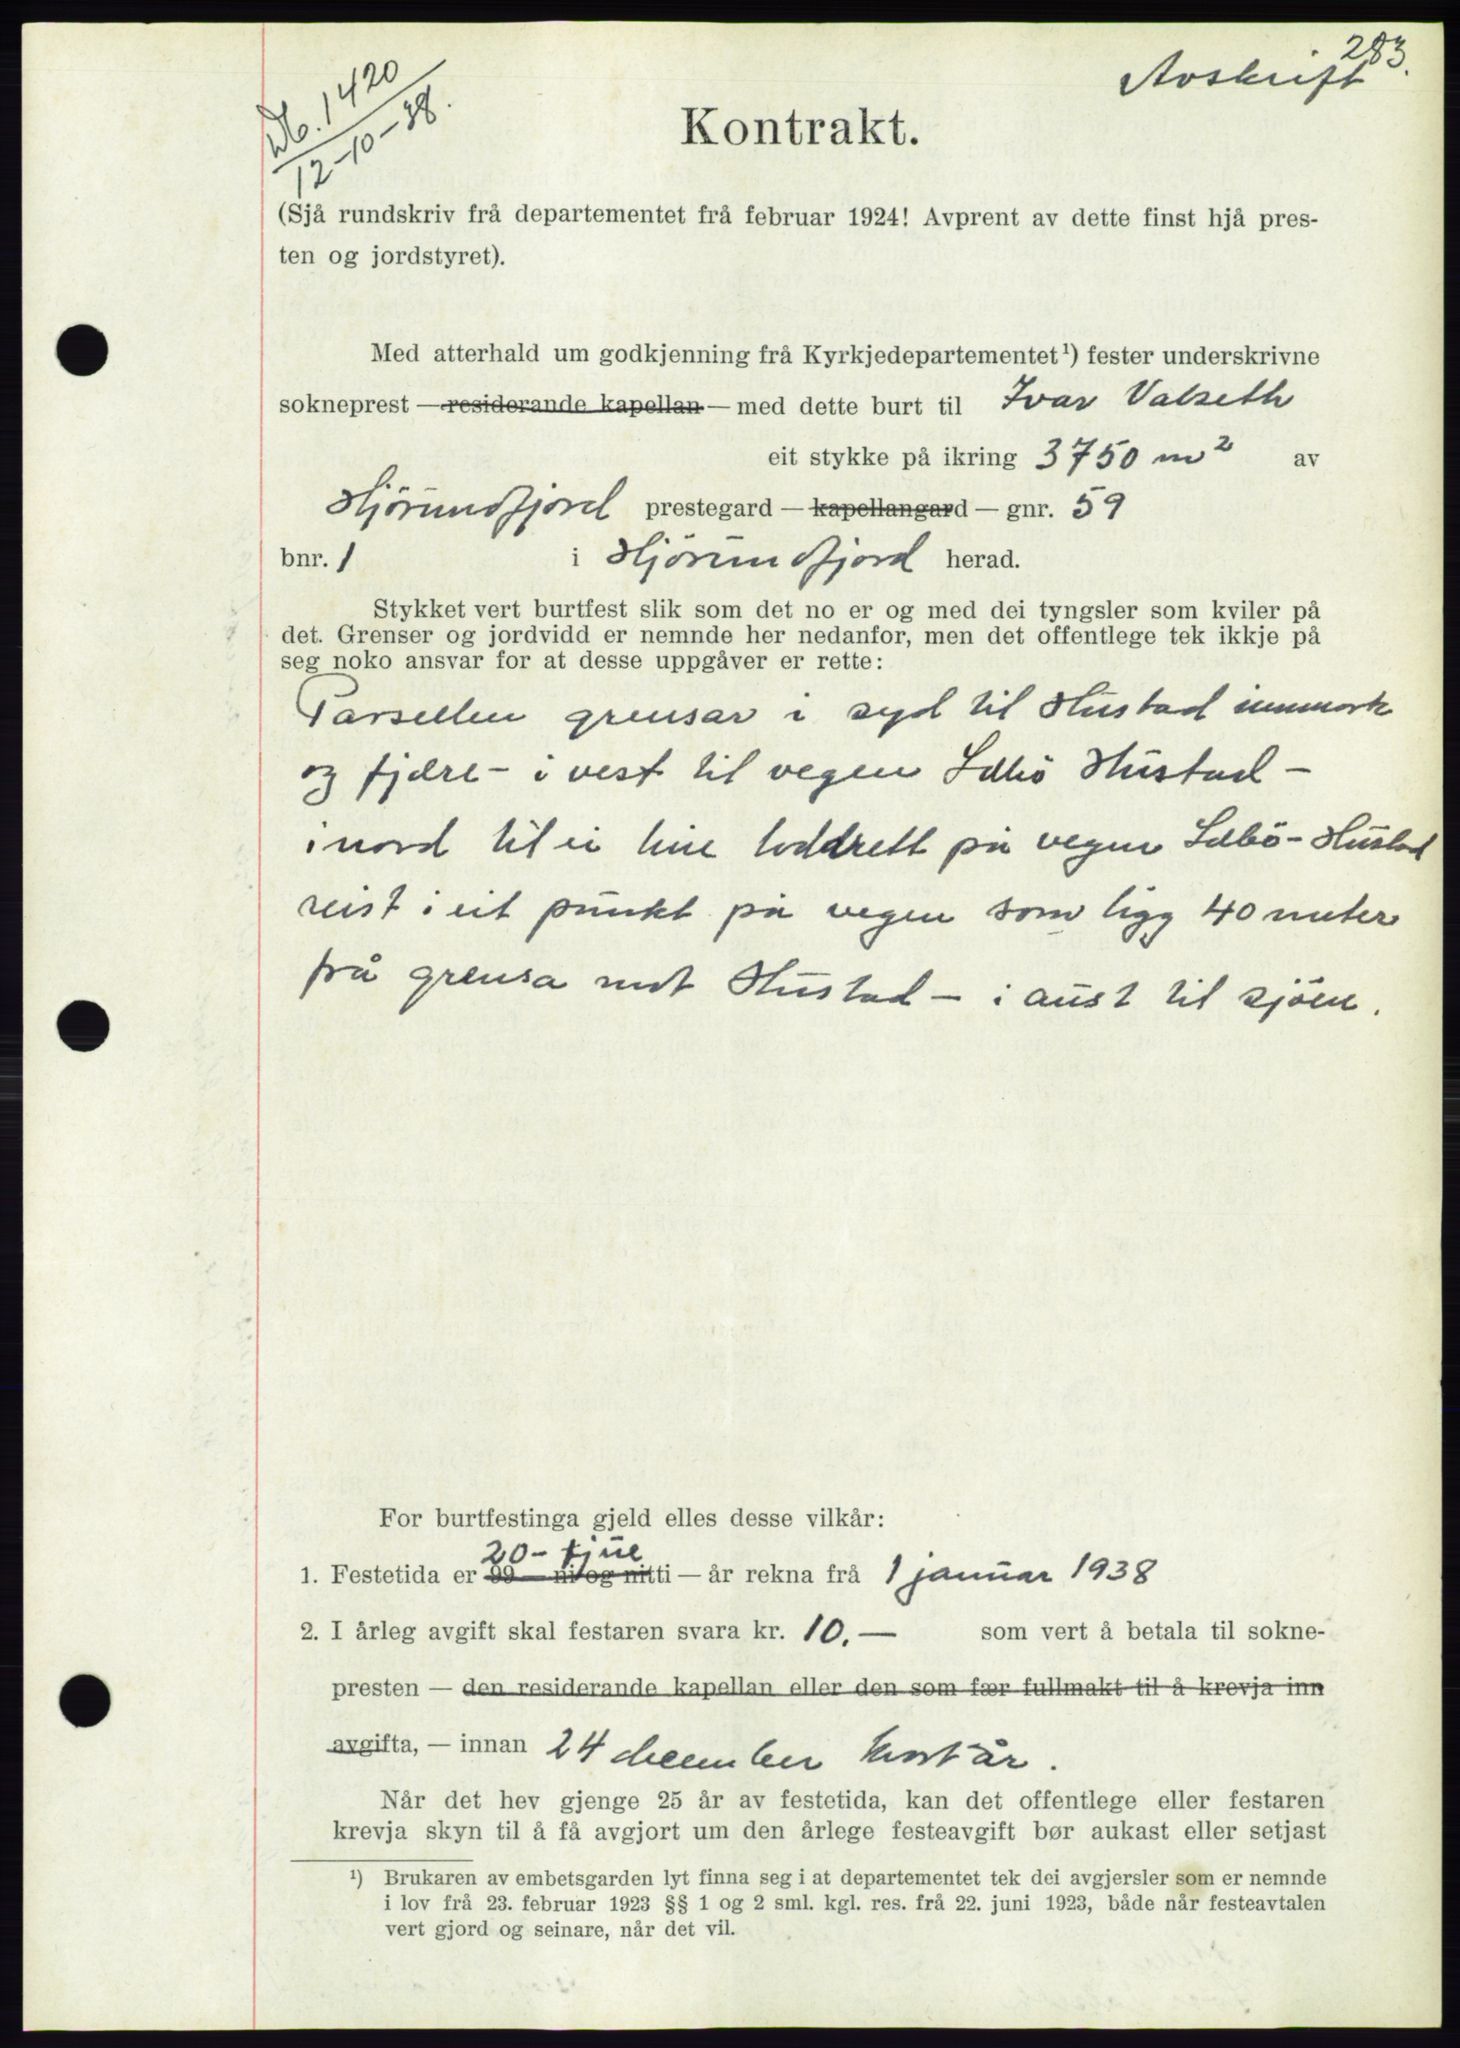 283.
Avskrift
Db. 1420
12-10-38.
Kontrakt.
(Sjå rundskriv frå departementet frå februar 1924! Avprent av dette finst hjå pres-
ten og jordstyret).
Med atterhald um godkjenning frå Kyrkjedepartementet¹) fester underskrivne
sokneprest — residerande kapellan — med dette burt til Ivar Valseth
eit stykke på ikring 3750 m² av
Hjörundfjord prestegard — kapellangard — gnr. 59
bnr. 1 i Hjörundfjord herad.
Stykket vert burtfest slik som det no er og med dei tyngsler som kviler på
det. Grenser og jordvidd er nemnde her nedanfor, men det offentlege tek ikkje på
seg noko ansvar for at desse uppgåver er rette:
Parsellen grensar i syd til Hustad innmark
og fjære - i vest til vegen Sæbö Hustad -
i nord til ei line loddrett på vegen Sæbö - Hustad
reist i eit punkt på vegen som ligg 40 meter
frå grensa mot Hustad - i aust til sjöen.
For burtfestinga gjeld elles desse vilkår:
20 - tjue
1. Festetida er 99 — ni og nitti — år rekna frå 1 januar 1938
2. I årleg avgift skal festaren svara kr. 10.— som vert å betala til sokne-
presten — den residerande kapellan eller den som fær fullmakt til å krevja inn
avgifta, — innan 24 december kvart år.
Når det hev gjenge 25 år av festetida, kan det offentlege eller festaren
krevja skyn til å få avgjort um den årlege festeavgift bør aukast eller setjast
¹) Brukaren av embetsgarden lyt finna seg i at departementet tek dei avgjersler som er nemnde
i lov frå 23. februar 1923 §§ 1 og 2 sml. kgl. res. frå 22. juni 1923, både når festeavtalen
vert gjord og seinare, når det vil.